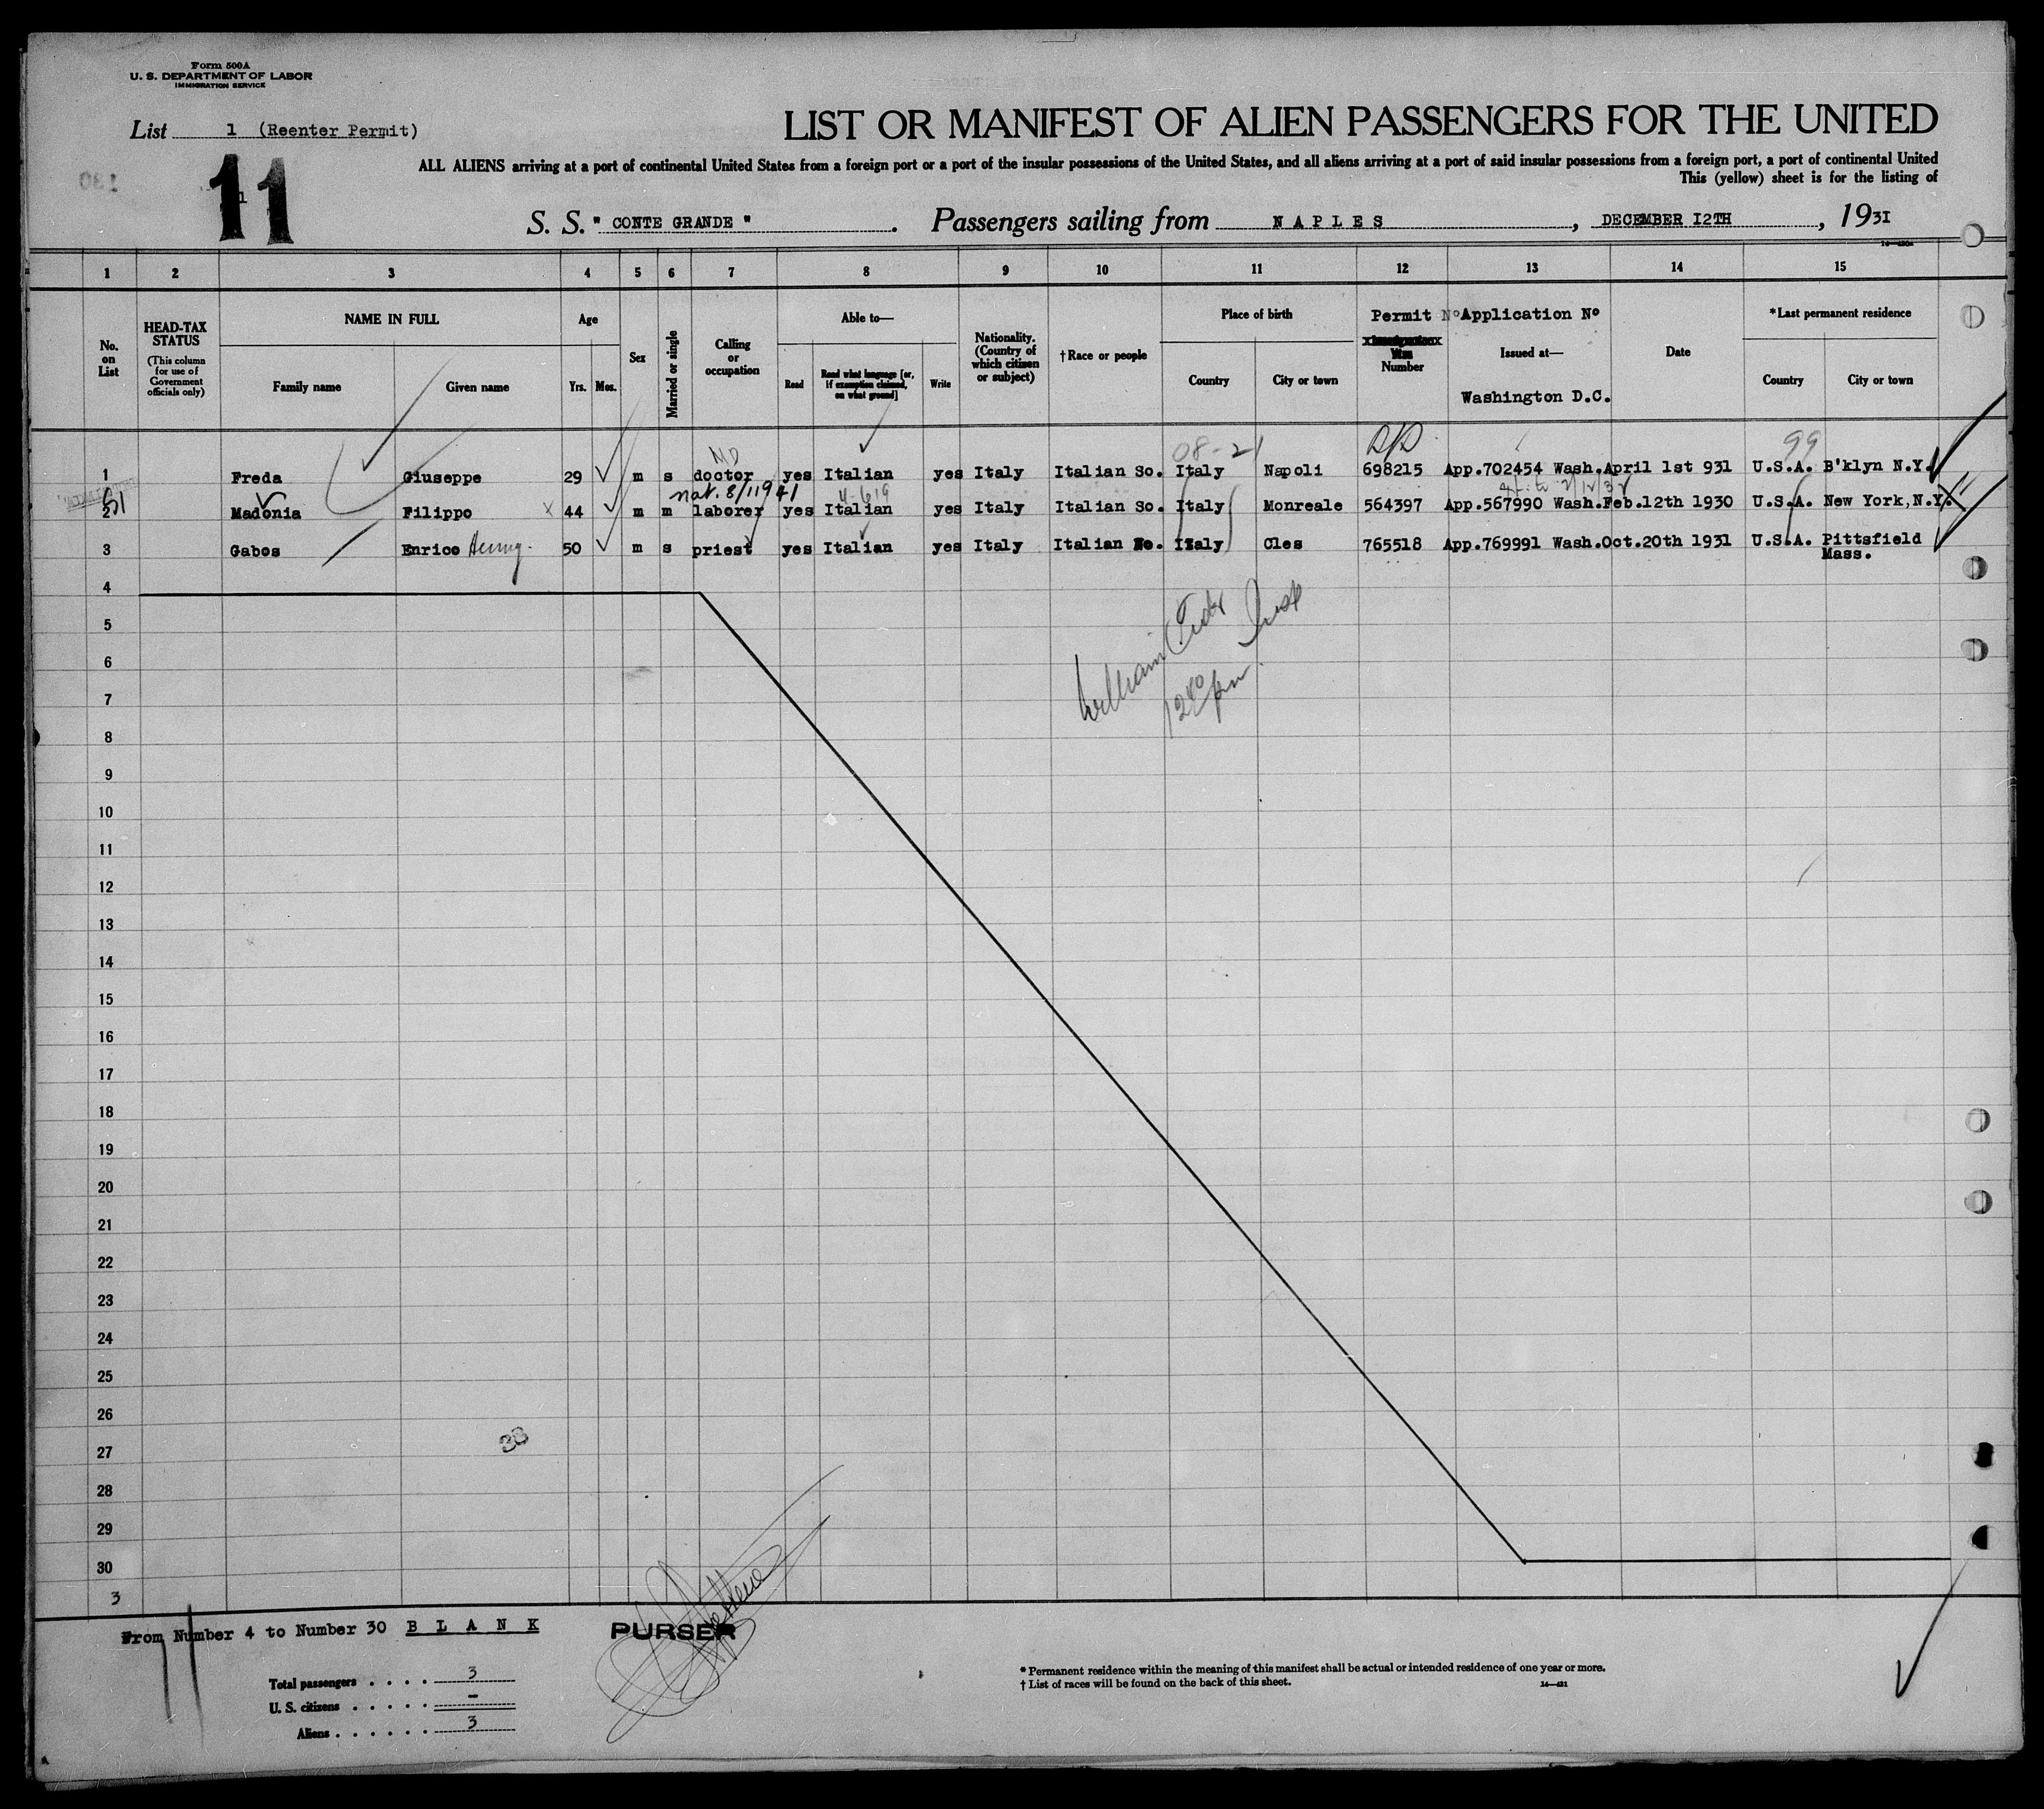 Form 500A
U. S. DEPARTMENT OF LABOR
IMMIGRATION SERVICE
List 1 (Reenter Permit)
11
LIST OR MANIFEST OF ALIEN PASSENGERS FOR THE UNITED
ALL ALIENS arriving at a port of continental United States from a foreign port or a port of the insular possessions of the United States, and all aliens arriving at a port of said insular possessions from a foreign port, a port of continental United
This (yellow) sheet is for the listing of
S. S. " CONTE GRANDE " . Passengers sailing from NAPLES , DECEMBER 12TH , 1931
1 2 3 4 5 6 7 8 9 10 11 12 13 14 15
No. on List
HEAD-TAX STATUS
(This column for use of Government officials only)
NAME IN FULL
Family name Given name
Age
Yrs. Mos.
Sex
Married or single
Calling or occupation
Able to—
Read Read what language [or, if exemption claimed, on what ground] Write
Nationality. (Country of which citizen or subject)
†Race or people
Place of birth
Country City or town
Permit No Application No
Number
Issued at—
Washington D.C.
Date
*Last permanent residence
Country City or town
MD 08-21 99
1 Freda Giuseppe 29 m s doctor yes Italian yes Italy Italian So. Italy Napoli 698215 App.702454 Wash. April 1st 931 U.S.A. B'klyn N.Y.
nat. 8/11941 4-619
2 Madonia Filippo 44 m m laborer yes Italian yes Italy Italian So. Italy Monreale 564397 App.567990 Wash. Feb.12th 1930 U.S.A. New York,N.Y.
3 Gabos Enrico Henry 50 m s priest yes Italian yes Italy Italian No. Italy Cles 765518 App.769991 Wash. Oct.20th 1931 U.S.A. Pittsfield
Mass.
4
5
6
7
8
9
10
11
12
13
14
15
16
17
18
19
20
21
22
23
24
25
26
27
28
29
30
3
William
Insp
12 40 pm
33
From Number 4 to Number 30 BLANK
PURSER
Total passengers . . . . 3
U. S. citizens . . . . . -
Aliens . . . . . . 3
* Permanent residence within the meaning of this manifest shall be actual or intended residence of one year or more.
† List of races will be found on the back of this sheet.
14—421